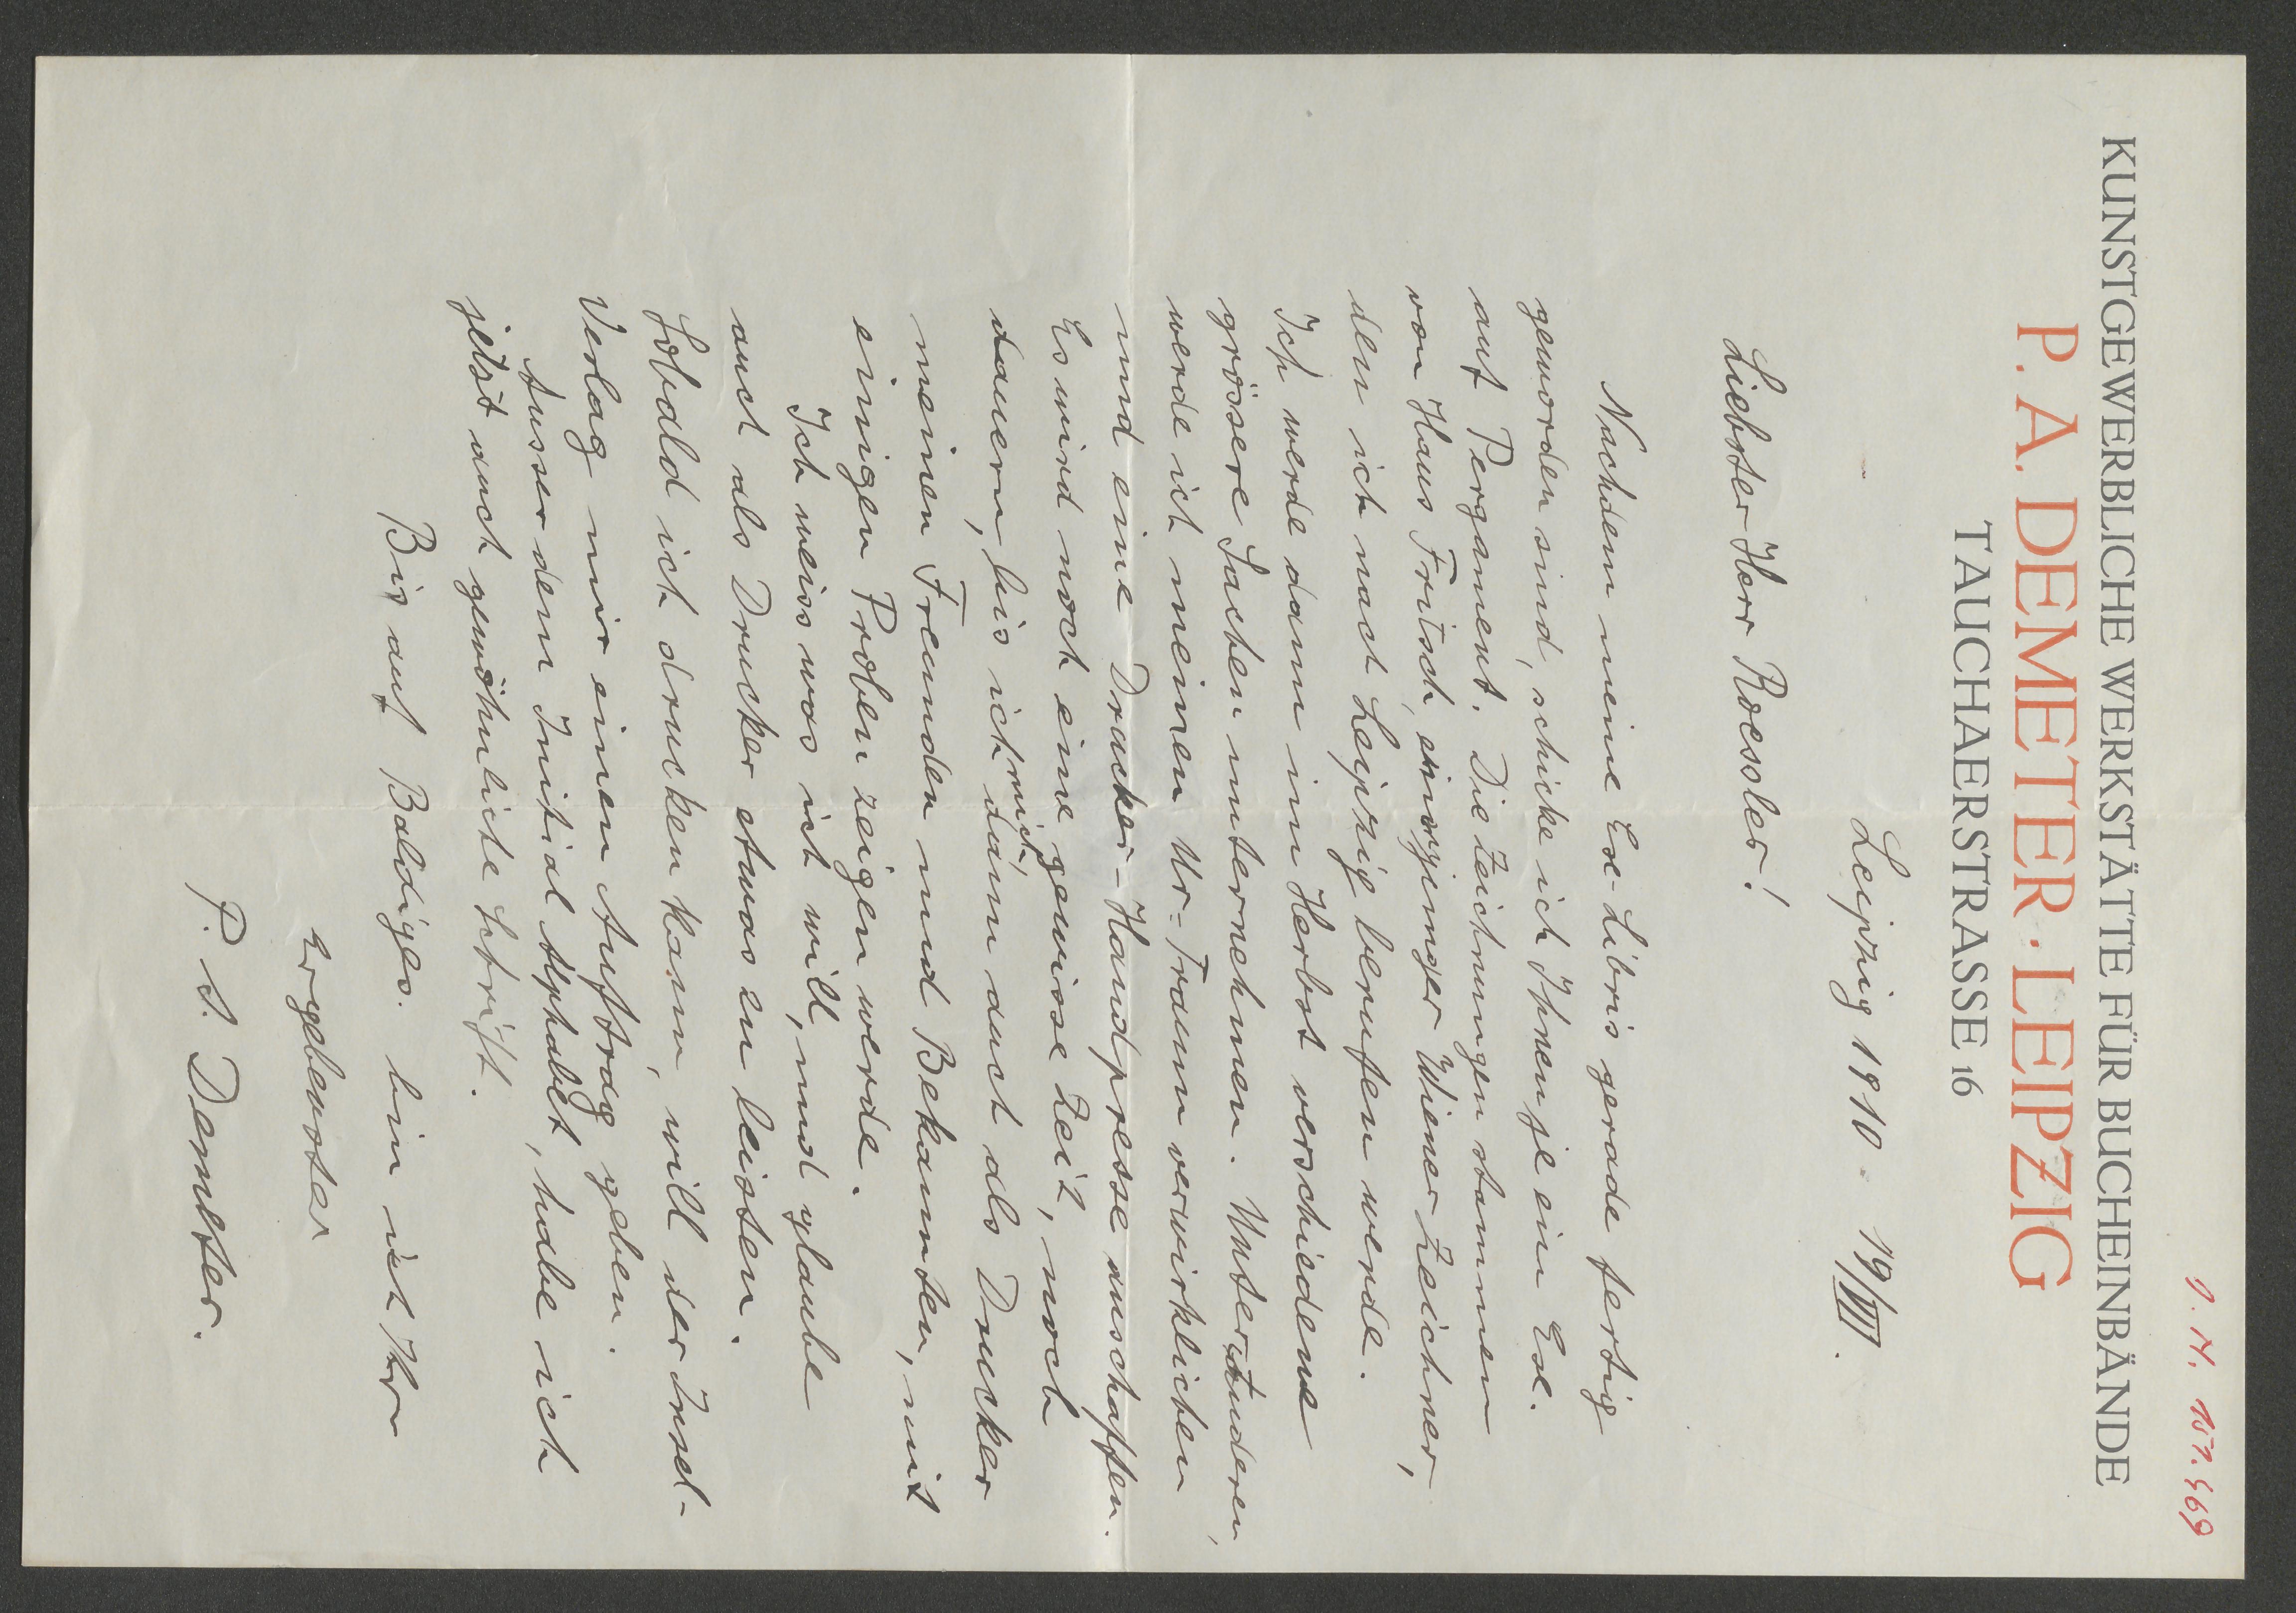 J. N. 157.469
KUNSTGEWERBLICHE WERKSTÄTTE FÜR BUCHEINBÄNDE
P. A. DEMETER · LEIPZIG
TAUCHAERSTRASSE 16
Leipzig 1910. 19/VII.
Liebster Herr Roessler!
Nachdem meine Ex-Libris gerade fertig
geworden sind, schicke ich Ihnen je ein Exe.
auf Pergament. Die Zeichnungen stammen
von Haus Fritsch, ein junger Wiener Zeichner,
den ich nach Leipzig berufen werde.
Ich werde dann im Herbst verschiedene
grössere Sachen unternehmen. Unter anderen,
werde ich meinen Ur-Traum verwirklichen
und eine Drucker-Handpresse anschaffen.
Es wird noch eine gewisse Zeit, noch
dauern, bis ich mich, dann auch als Drucker
meinen Freunden und Bekannten, mit
einigen Proben zeigen werde.
Ich weiss was ich will, und glaube
auch als Drucker etwas zu leisten.
Sobald ich drucken kann, will der Insel-
Verlag mir einen Auftrag geben.
Ausser dem Initial Alphabet, habe ich
jetzt auch gewöhnliche Schrift.
Bis auf Baldiges. bin ich Ihr
Ergebenster
P. A. Demeter.